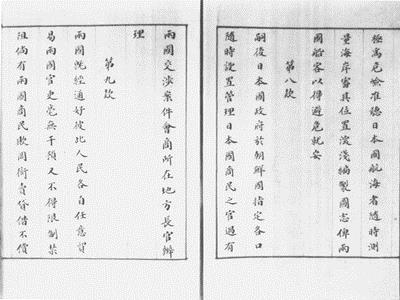 極爲危險准聽日本國航海者隨時測
量海岸審其位置深淺編製圖志俾兩
國船客以得避危就安
第八款
嗣後日本國政府於朝鮮國指定各口
隨時設置管理日本國商民之官遇有
兩國交涉案件會商所在地方長官辦
理
第九款
兩國既經通好彼此人民各自任意貿
易兩國官吏毫無干預又不得限制禁
阻倘有兩國商民欺罔衒賣貸借不償